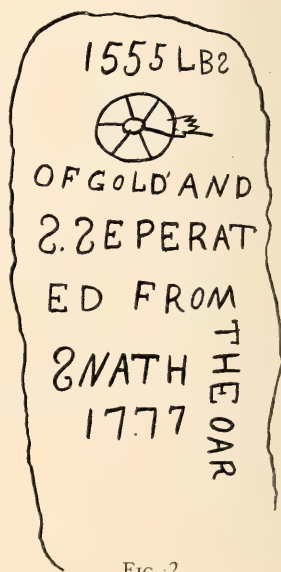 1555 LBS
OF GOLD AND
S. SEPERAT
ED FROM
THE OAR
SNATH
1777
FIG. 2